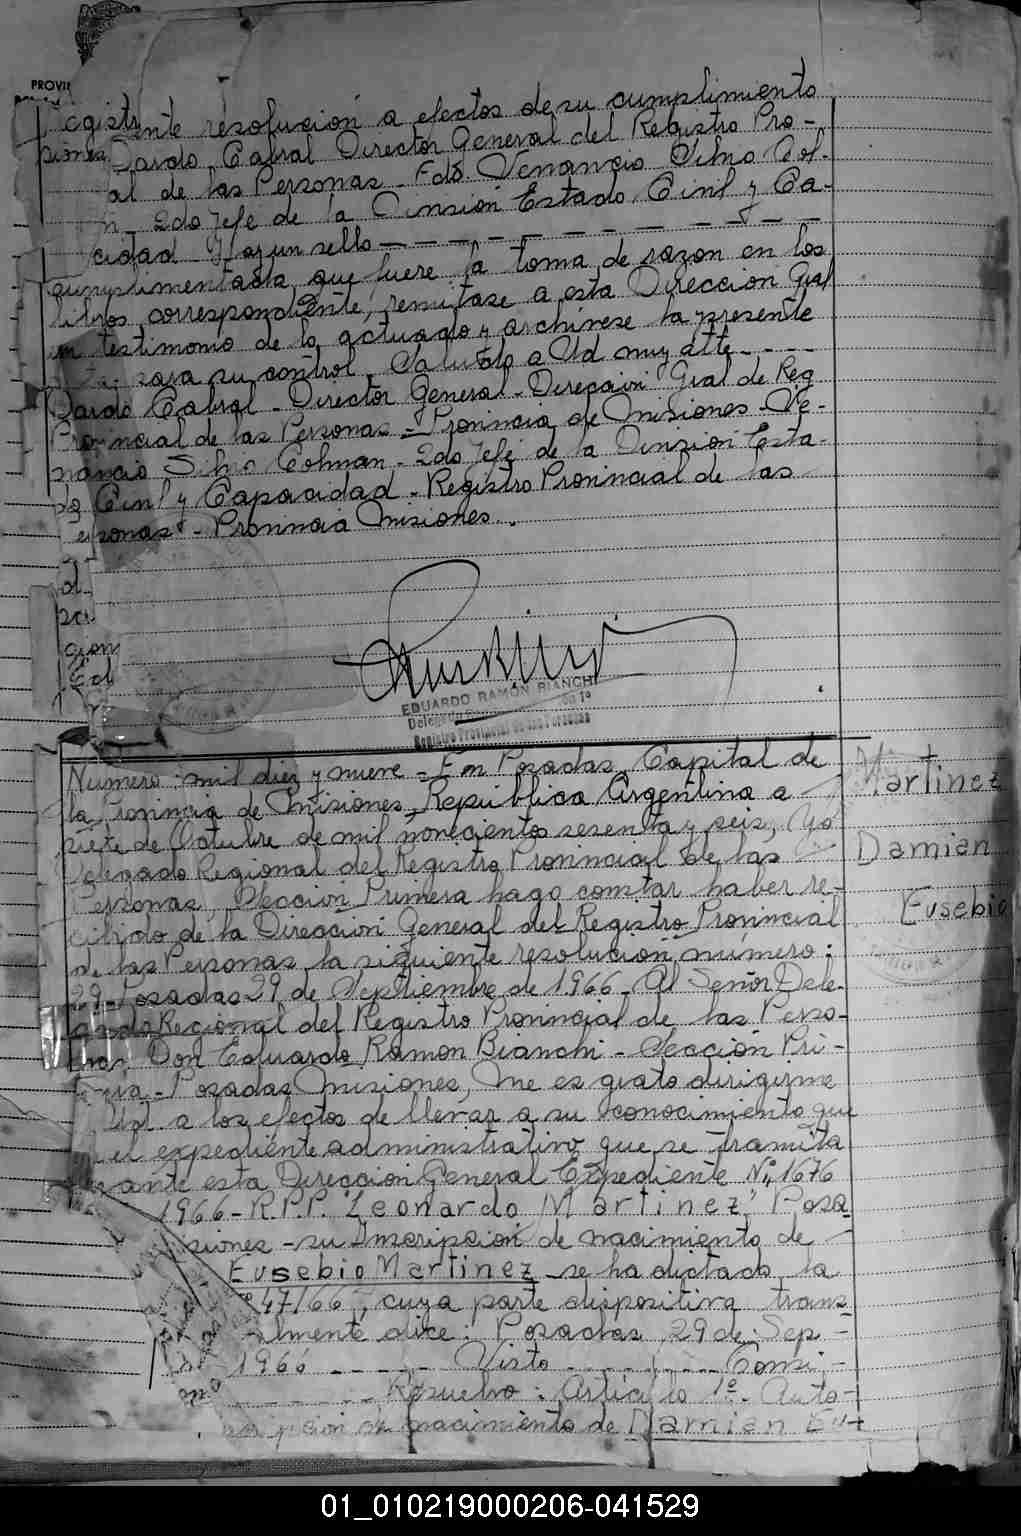 PROVI
resolución a efectos de su cumplimiento
Dardo Cabral Director General del Registro Pro-
al de las Personas - Fdo. Venancio Silvio Col-
2do Jefe de la Division Estado Civil y Ca-
cidad - Hay un sello
cumplimentada que fuere la toma de razon en los
libros correspondiente, remitase a esta Direccion Gral
un testimonio de lo actuado y archivese la presente
para su control. Saludo a Ud muy atte
Dardo Cabral - Director General - Direccion Gral de Reg
Provincial de las Personas - Provincia de Misiones - Ve-
nancio Silvio Colman - 2do Jefe de la Division Esta-
do Civil y Capacidad - Registro Provincial de las
ersonas - Provincia Misiones.
EDUARDO RAMÓN BIANCHI
Registro Provincial de las Personas
Numero: mil diez y nueve - En Posadas Capital de
la Provincia de Misiones, República Argentina a
siete de Octubre de mil novecientos sesenta y seis, Yo
Delegado Regional del Registro Provincial de las
Personas, Seccion Primera hago constar haber re-
cibido de la Direccion General del Registro Provincial
de las Personas la siguiente resolucion número:
29 - Posadas 29 de Septiembre de 1966 - Al Señor Dele-
gado Regional del Registro Provincial de las Perso-
nas Don Eduardo Ramon Bianchi - Seccion Pri-
Posadas Misiones, Me es grato dirigirme
Ud a los efectos de llevar a su conocimiento que
el expediente administrativo que se tramita
ante esta Direccion General Expediente Nº 1676
1966 - R.P.P. "Leonardo Martinez" Posa
siones - su Inscripcion de nacimiento de
Eusebio Martinez - se ha dictado la
47166, cuya parte dispositiva trans
almente dice: Posadas 29 de Sep-
1966 Visto Consi-
Resuelvo: Articulo 1º - Auto-
nacimiento de Damian Eu-
Martinez
Damian
Eusebio
01_010219000206-041529